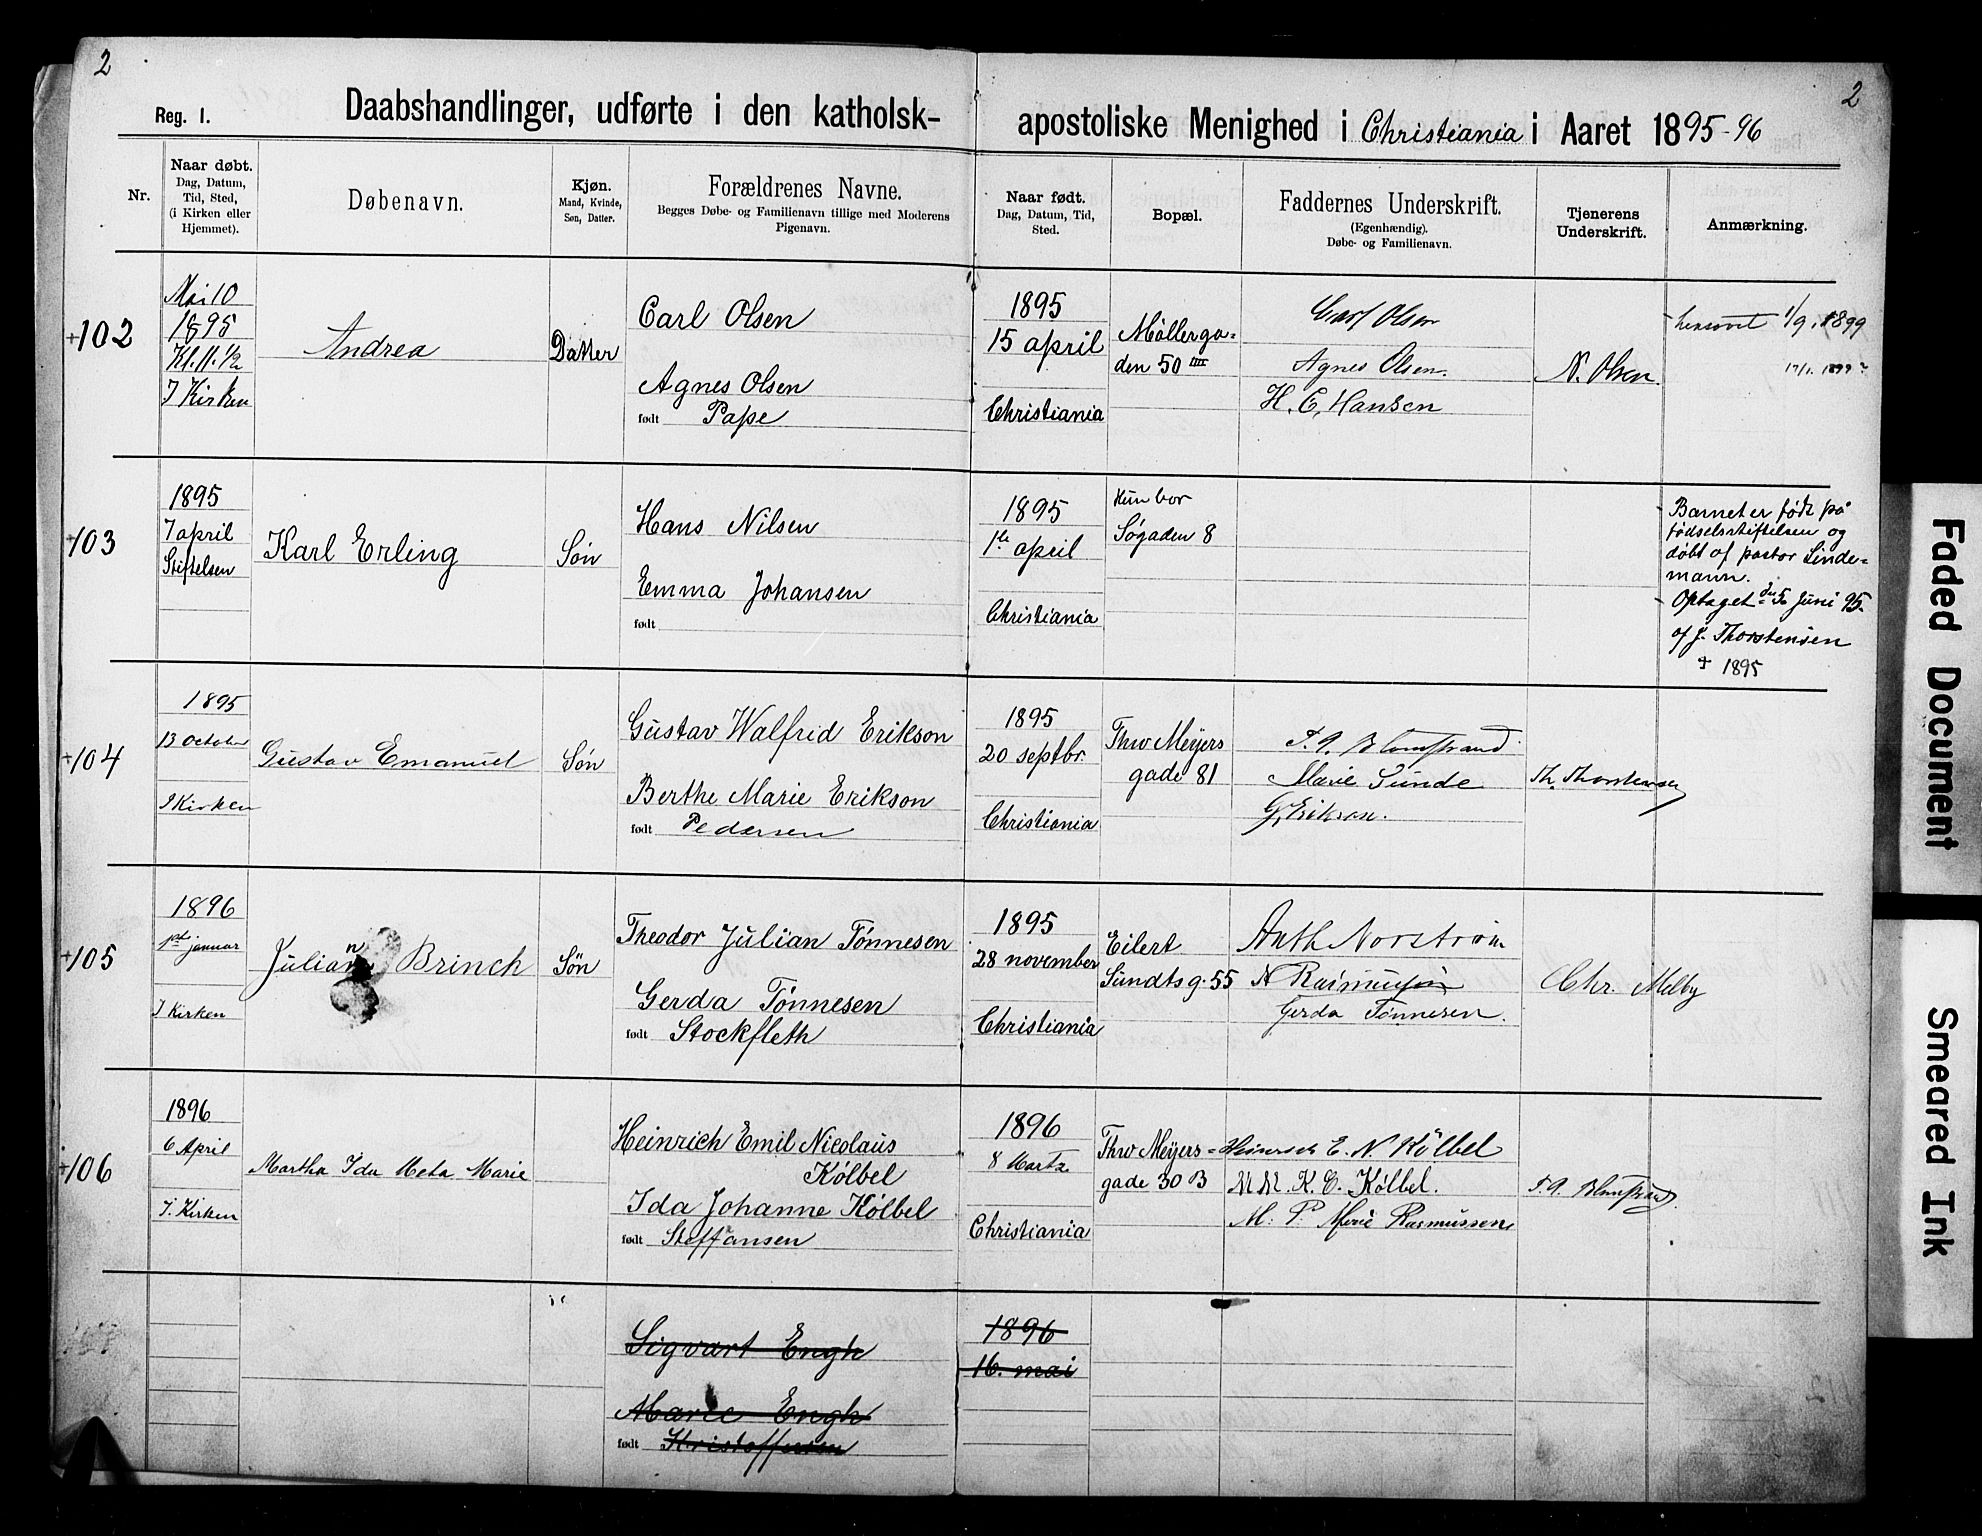 2
2
Reg. I.
Daabshandlinger, udførte i den katholsk-
apostoliske Menighed i Christiania i Aaret 1895-96
Nr.
Naar døbt.
Dag, Datum,
Tid, Sted,
(i Kirken eller
Hjemmet).
Døbenavn.
Kjøn.
Mand, Kvinde,
Søn, Datter.
Forældrenes Navne.
Begges Døbe- og Familienavn tillige med Moderens
Pigenavn.
Naar født.
Dag, Datum, Tid,
Sted.
Bopæl.
Faddernes Underskrift.
(Egenhændig).
Døbe- og Familienavn.
Tjenerens
Underskrift.
Anmærkning.
+102
Mai 10
1895
Kl. 11. 1/2
I Kirken
Andrea
Datter
Carl Olsen
Agnes Olsen
født Pape
1895
15 april
Christiania
Møllerga=
den 50 IIII
Carl Olsen
Agnes Olsen.
H. C. Hansen
N. Olsen.
1/9. 1899
+103
1895
7 april
Stiftelsen
Karl Erling
Søn
Hans Nilsen
Emma Johansen
født
1895
1ste april
Christiania
Hun bor
Søgaden 8
Barnet er født på
fødselsstiftelsen og
døbt af pastor Linde=
mann.
Optaget den 5 Juni 95.
af J. Thorstensen
+ 1895
+104
1895
13 October
I Kirken
Gustav Emanuel
Søn
Gustav Walfrid Erikson
Berthe Marie Erikson
født Pedersen
1895
20 septbr.
Christiania
Thv Meyers
gade 81
F. A. Blomstrand
Marie Sunde
G. Erikson.
Th. Thorstensen
+105
1896
1st januar
I Kirken
Juliann Brinch
Søn
Theodor Julian Tønnesen
Gerda Tønnesen
født Stockfleth
1895
28 november
Christiania
Eilert
Sundtsg. 55
Anth Norstrøm
N Rasmussen
Gerda Tønnesen.
Chr. Melby
+106
1896
6 April
I. Kirken
Martha Ida Meta Marie
Heinrich Emil Nicolaus
Kölbel
Ida Johanne Kölbel
født Steffansen
1896
8 Marts
Christiania
Thv Meyers=
gade 30 B
Heinrich E. N Kölbel
M. M. K. C. Kölbel.
M. P. Marie Rasmussen
F. A. Blomstrand.
107
Sigvart Engh
Marie Engh
født Kristoffersen
1896
16. mai
Faded Document
Smeared Ink